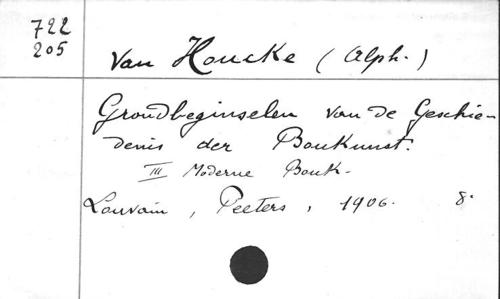 722
205
Van Houcke (Alph.)
Grondbeginselen van de Geschie-
denis der Boukunst.
III Moderne Bouk-
Louvain, Peeters, 1906. 8.